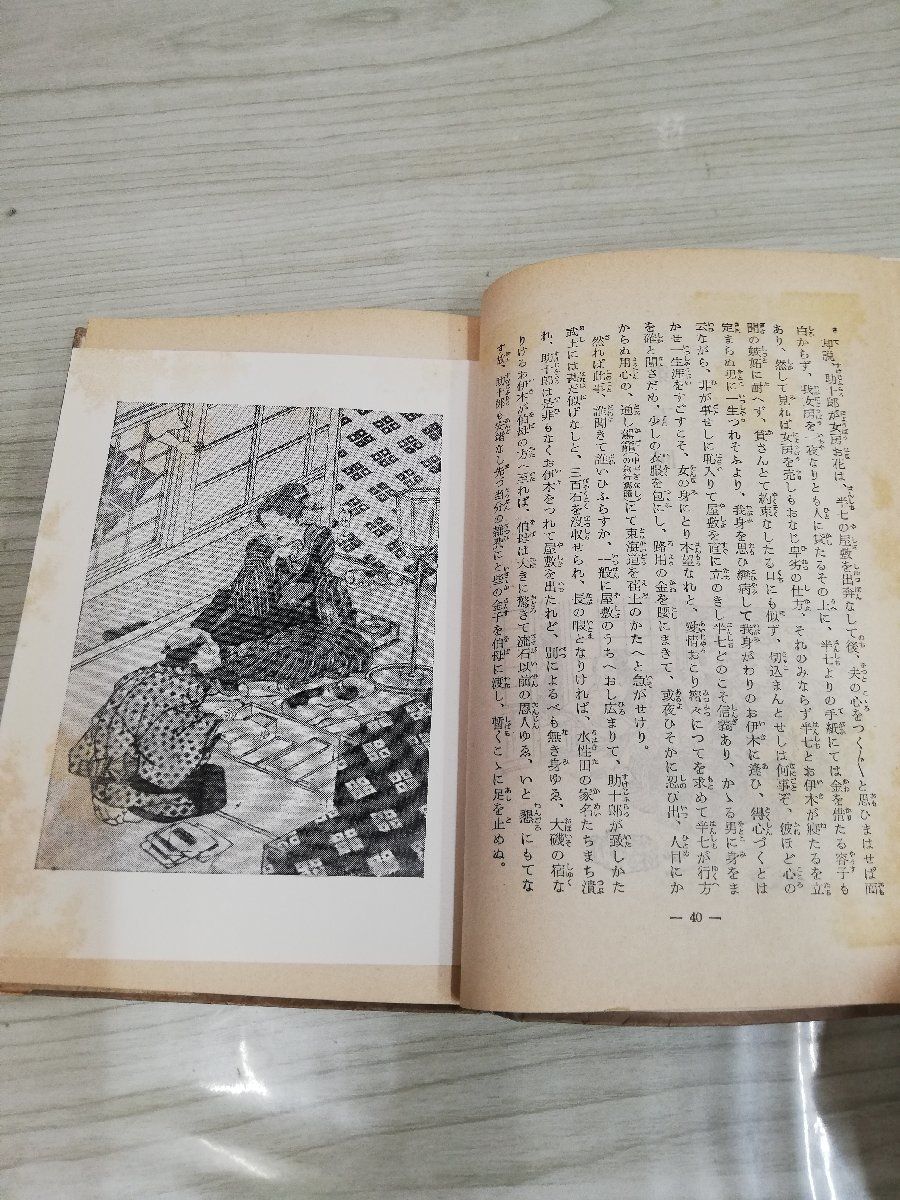 却説、助十郎が女房お花は、半七の屋敷を出奔なして後、夫の心をつく〴〵と思ひまはせば面
白からず、我女房を一夜なりとも人に貸たるその上に、半七よりの手紙にては金を借たる容子も
あり、然して見れば女房を売しもおなじ卑劣の仕方、それのみならず半七とお伊木が寝たるを立
聞の嫉妬に耐へず、貸さんとて約束なしたる口にも似ず、切込まんとせしは何事ぞ、彼ほど心の
定まらぬ男に一生つれそふより、我身を思ひ癪病して我身がわりのお伊木に逢ひ、得心づくとは
云ながら、非が事せしに恥入りて屋敷を直に立のきし半七どのこそ信義あり、かゝる男に身をま
かせ一生涯をすごすこそ、女の身にとり本望なれと、痴情おこり密々につてを求めて半七が行方
を確と聞さだめ、少しの衣服を包にし、路用の金を腰にまきて、或夜ひそかに忍び出、人目にか
からぬ用心の、通し駕籠にて東海道を 士のかたへと急がせけり。
然れば此事、誰聞きて誰いひふらすか、一般に屋敷のうちへおし広まりて、助十郎が致しかた
武士には甚だ似げなしと、三百石を没収せられ、長の暇となりければ、水性田の家名たちまち潰
れ、助十郎は是非もなくお伊木をつれて屋敷を出たれど、別によるべも無き身ゆゑ、大磯の宿な
りけるお伊木が伯母の方へ至れば、伯母は大きに驚きて流石以前の恩人ゆゑ、いと懇にもてな
す故、助十郎も安堵なし先づ当分の雑費にと些の金子を伯母に渡し、暫くこゝに足を止めぬ。
— 40 —